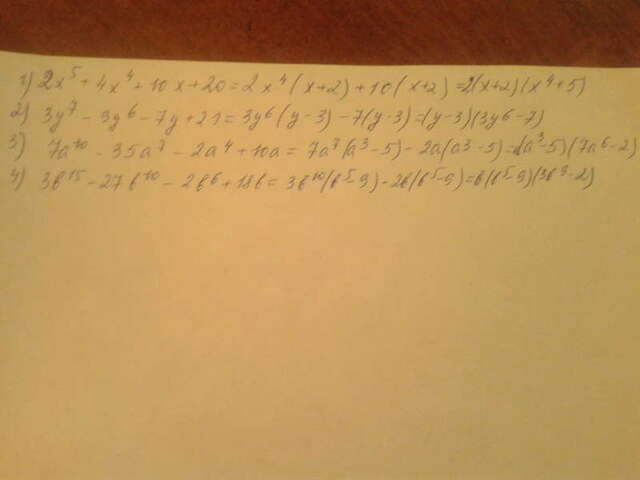 1) 2x⁵ + 4x⁴ + 10x + 20 = 2x⁴(x+2) + 10(x+2) = 2(x+2)(x⁴+5)
2) 3y⁷ - 9y⁶ - 7y + 21 = 3y⁶(y-3) - 7(y-3) = (y-3)(3y⁶-7)
3) 7a¹⁰ - 35a⁷ - 2a⁴ + 10a = 7a⁷(a³-5) - 2a(a³-5) = a(a³-5)(7a⁶-2)
4) 3b¹⁵ - 27b¹⁰ - 2b⁶ + 18b = 3b¹⁰(b⁵-9) - 2b(b⁵-9) = b(b⁵-9)(3b⁹-2)